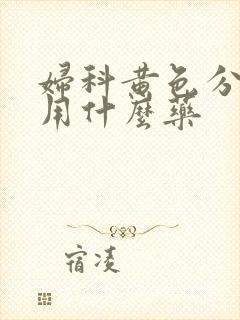 婦科黄色分
用什麼藥
宿凌